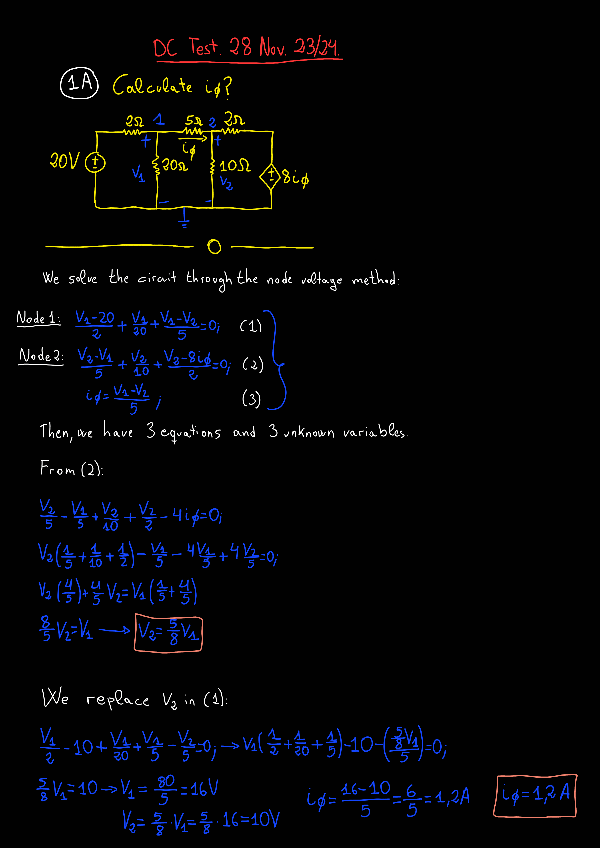 DC Test. 28 Nov. 23/24.
1A Calculate iφ?
2Ω 1 5Ω 2 2Ω
+ iφ +
20V V₁ 20Ω 10Ω V₂ 8iφ
- -
We solve the circuit through the node voltage method:
Node 1: (V₁-20)/2 + V₁/20 + (V₁-V₂)/5 = 0; (1)
Node 2: (V₂-V₁)/5 + V₂/10 + (V₂-8iφ)/2 = 0; (2)
iφ = (V₁-V₂)/5; (3)
Then, we have 3 equations and 3 unknown variables.
From (2):
V₂/5 - V₁/5 + V₂/10 + V₂/2 - 4iφ = 0;
V₂(1/5 + 1/10 + 1/2) - V₁/5 - 4V₁/5 + 4V₂/5 = 0;
V₂(4/5) + 4/5 V₂ = V₁(1/5 + 4/5)
8/5 V₂ = V₁ → V₂ = 5/8 V₁
We replace V₂ in (1):
V₁/2 - 10 + V₁/20 + V₁/5 - V₂/5 = 0; → V₁(1/2 + 1/20 + 1/5) - 10 - (5/8 V₁/5) = 0;
5/8 V₁ = 10 → V₁ = 80/5 = 16V iφ = (16-10)/5 = 6/5 = 1,2A iφ = 1,2A
V₂ = 5/8 · V₁ = 5/8 · 16 = 10V